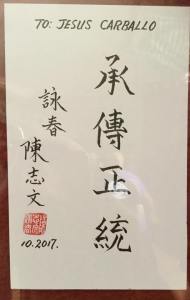 TO: JESUS CARBALLO
承傳正統
詠春
陳志文
10.2017.